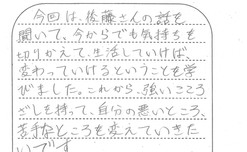 今回は、佐藤さんの話を
聞いて。今からでも気持ちを
切りかえて、生活していけば、
変わっていけるということを学
びました。これから、強いこころ
ざしを持って、自分の悪いところ、
苦手なところを変えていきた
いです